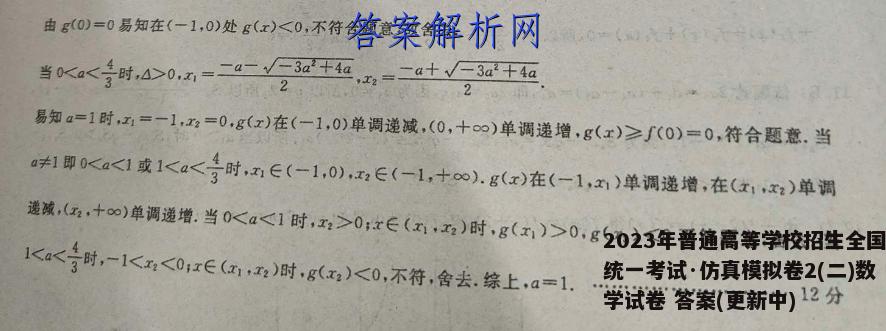 由 g(0)=0 易知在(-1,0)处 g(x)<0,不符合题意,故舍
答案解析网
当 0<a<4/3 时,Δ>0,x₁=(-a-√(-3a²+4a))/2,x₂=(-a+√(-3a²+4a))/2.
易知 a=1 时,x₁=-1,x₂=0,g(x)在(-1,0)单调递减,(0,+∞)单调递增,g(x)≥f(0)=0,符合题意.当
a≠1 即 0<a<1 或 1<a<4/3 时,x₁∈(-1,0),x₂∈(-1,+∞).g(x)在(-1,x₁)单调递增,在(x₁,x₂)单调
递减,(x₂,+∞)单调递增.当 0<a<1 时,x₂>0;x∈(x₁,x₂)时,g(x₁)>0,g(
1<a<4/3 时,-1<x₂<0;x∈(x₁,x₂)时,g(x₂)<0,不符,舍去.综上,a=1. 12 分
2023年普通高等学校招生全国
统一考试·仿真模拟卷2(二)数
学试卷 答案(更新中)